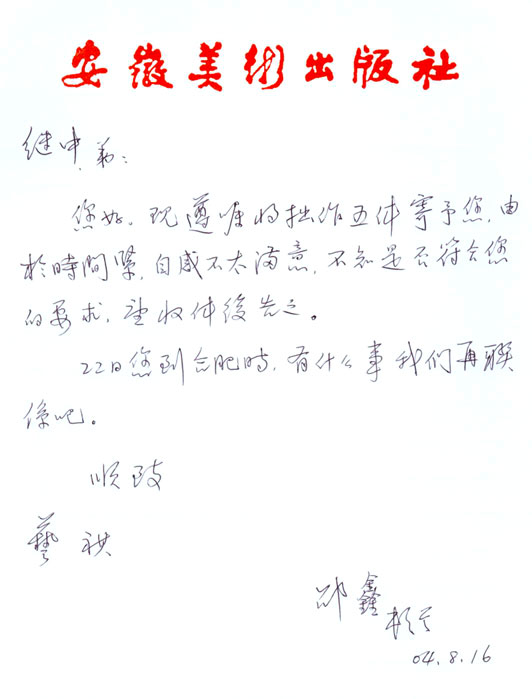 安徽美術出版社
继中弟：
您好，现遵嘱将拙作五件寄予您，由
於時間緊，自感不太满意，不知是否符合您
的要求，望收件後告之。
22日您到合肥時，有什么事我们再联
係吧。
顺致
藝祺
鑫
04.8.16